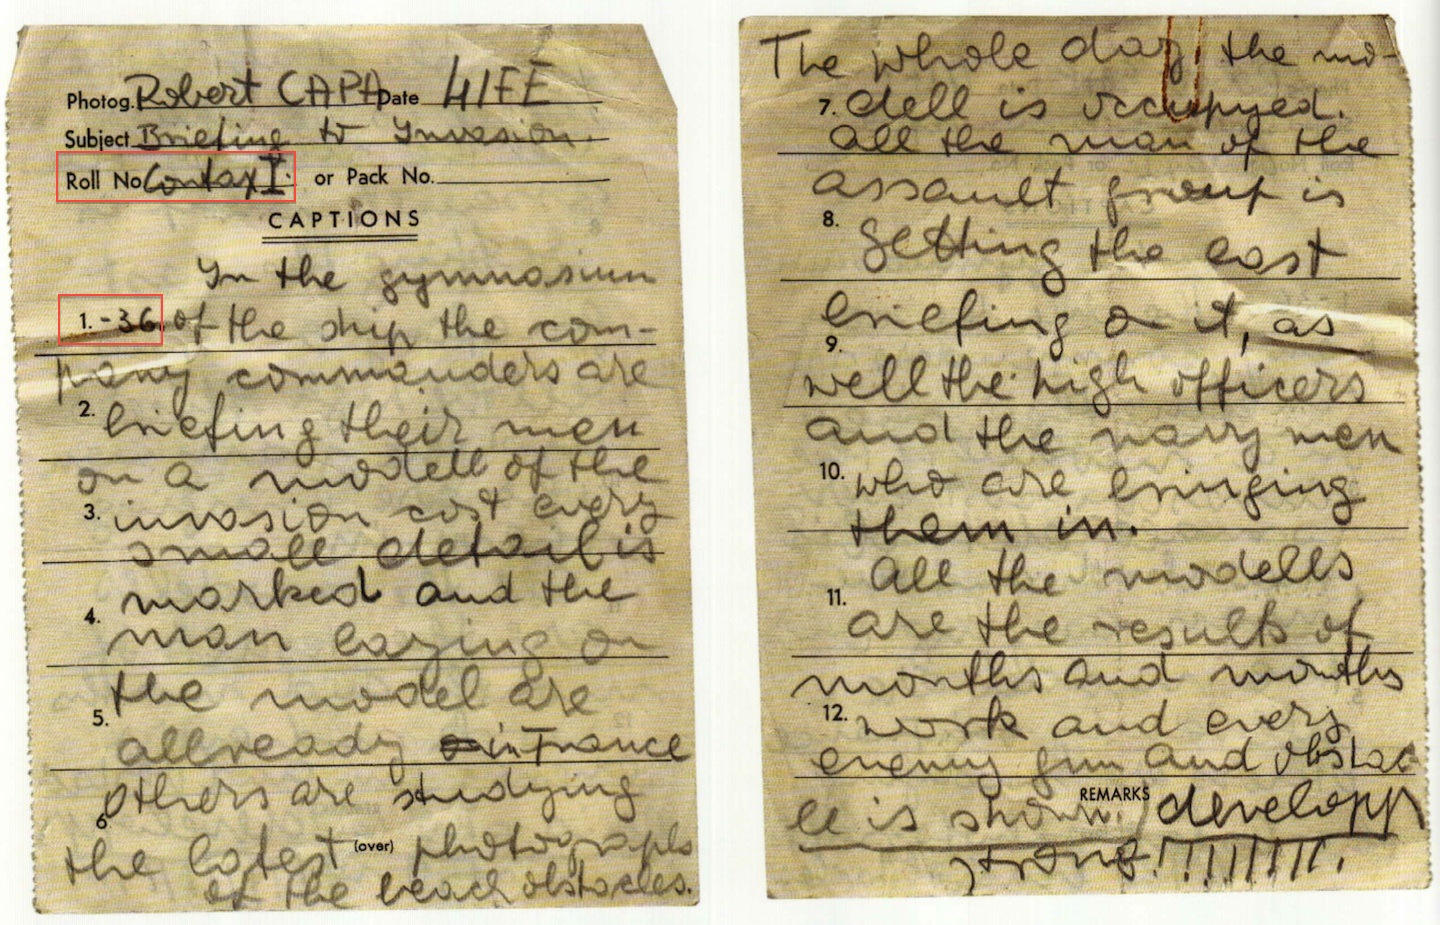 Photog. Robert CAPA Date LIFE
Subject Briefing to Invasion.
Roll No Contax I. or Pack No.
CAPTIONS
In the gymnasium
1. - 36. of the ship the com-
pany commanders are
2. briefing their men
on a modell of the
3. invasion cost every
small detail is
4. marked and the
man lazing on
the model are
5. allready in France
others are studying
6
the latest (over) photographs
of the beach obstacles.
The whole day the mo-
7. dell is occupyed.
All the man of the
assault group is
8. getting the last
briefing on it, as
9.
well the high officers
and the navy men
10. who are bringing
them in.
All the modells
11. are the results of
months and months
12. work and every
enemy gun and obstac
le is shown. REMARKS developp
strong!!!!!!!!!.